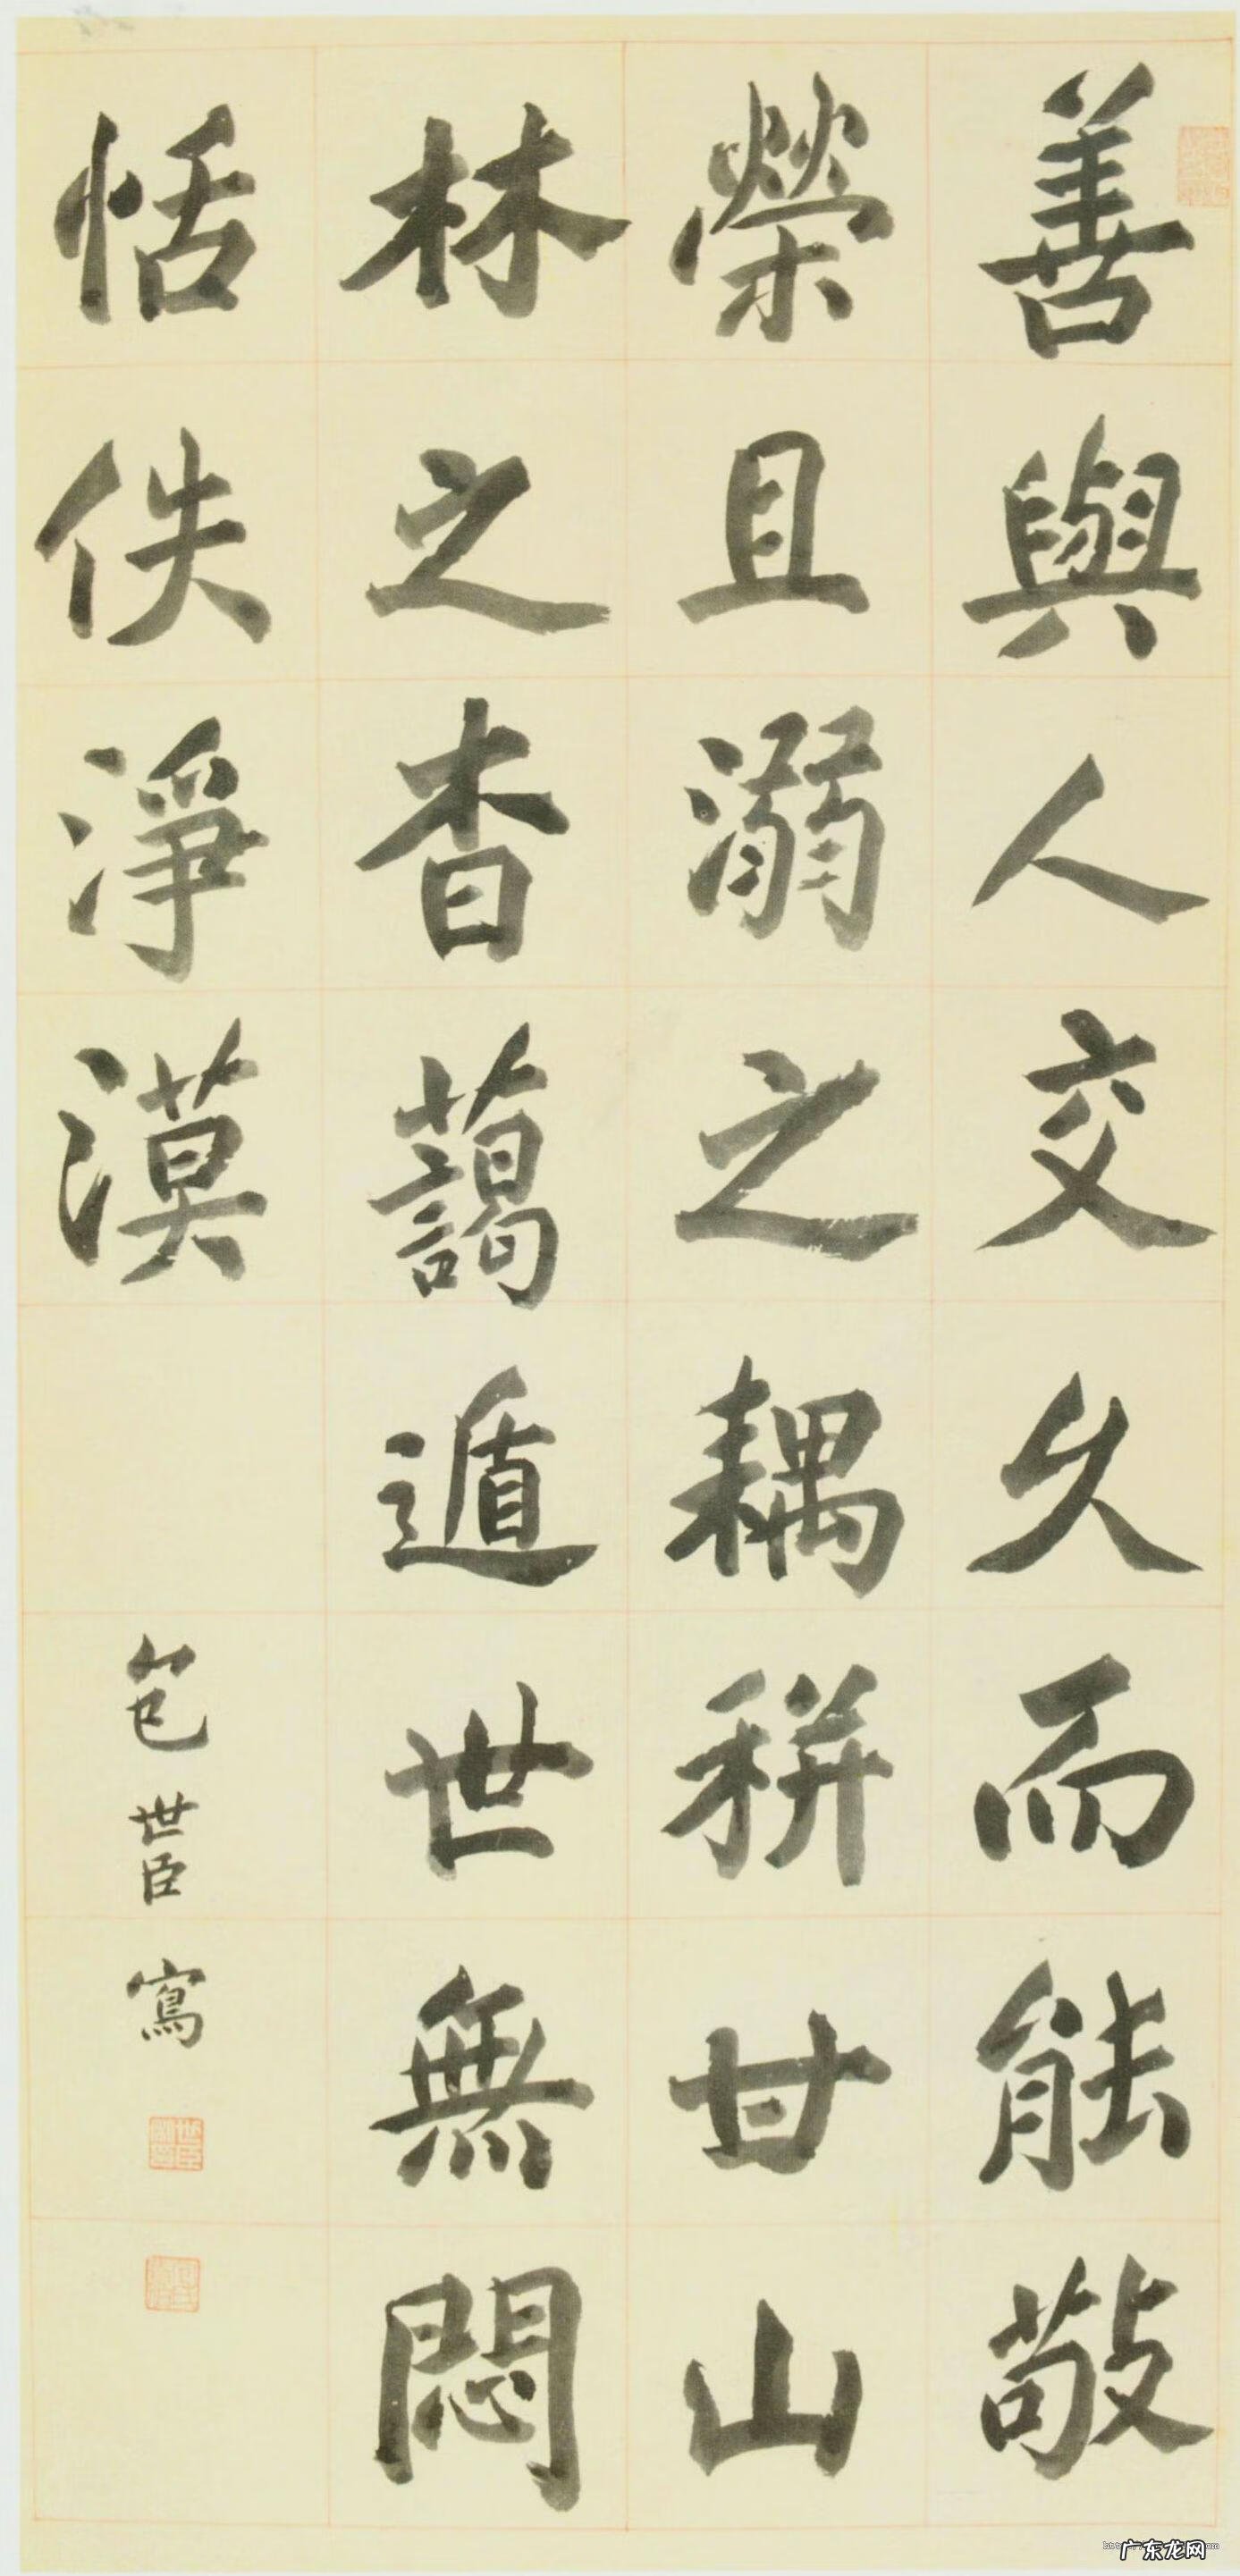 善與人交久而能敬
榮且溺之耦耕甘山
林之杳藹遁世無悶
恬佚淨漠
包世臣寫
广东龙网